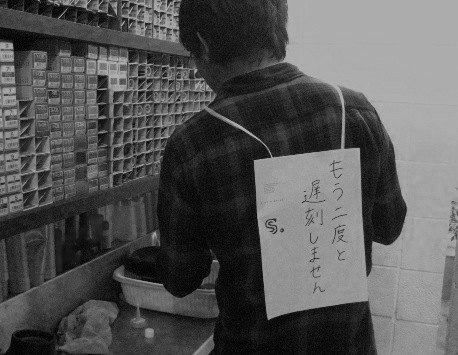 もう二度と
遅刻しません
S.